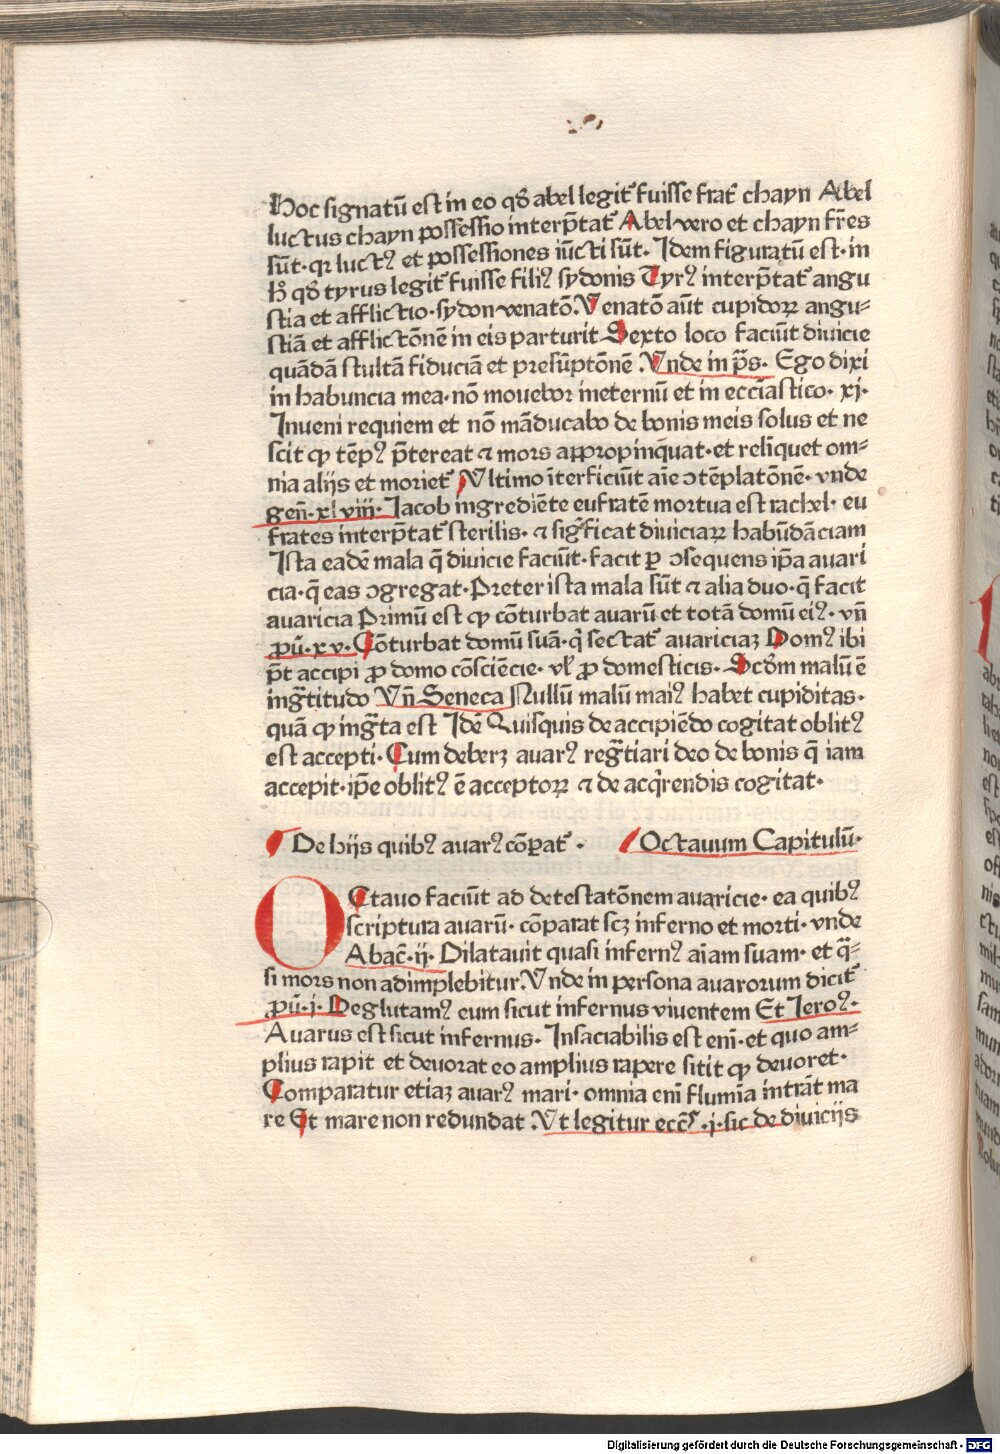 Hoc signatū est in eo qđ abel legit᷑ fuisse frat᷑ chayn Abel
luctus chayn possessio interp̄tat᷑ Abel vero et chayn fr̄es
sūt· qꝛ luctꝰ et possessiones iūcti sūt· Idem figuratū est· in
h̄ qđ tyrus legit᷑ fuisse filiꝰ sydonis Tyrꝰ interp̄tat᷑ angu
stia et afflictio· sydon venatō. Venatō aūt cupidoꝝ angu⸗
stiā et afflictōnē in eis parturit Sexto loco faciūt diuicie
quādā stultā fiduciā et presūptōnē. Vnde in p̄s· Ego dixi
in habuncia mea· nō mouebor ineternū et in eccīastico· xj·
Inueni requiem et nō māducabo de bonis meis solus et ne
scit qꝫ tēpꝰ p̄tereat ⁊ mors appropinq̄uat· et relinquet om⸗
nia alijs et moriet᷑ Vltimo īterficiūt aīe ↄtēplatōnē· vnde
geñ· xlviii· Iacob ingrediēte eufratē mortua est rachel· eu
frates interp̄tat᷑ sterilis· ⁊ sigīficat diuiciaꝝ habūdāciam
Ista eadē mala q̄ diuicie faciūt· facit ꝑ ↄsequens ip̄a auari
cia· q̄ eas ↄgregat· Preter ista mala sūt ⁊ alia duo· q̄ facit
auaricia Primū est qꝫ cōturbat auarū et totā domū eiꝰ· vñ
ꝓū· xv· Cōturbat domū suā· q̄ sectat᷑ auariciaꝫ Domꝰ ibi
p̄t accipi ꝓ domo cōsciēcie· vł ꝓ domesticis· Scđm malū ē
ingᷓtitudo Vñ Seneca Nullū malū maiꝰ habet cupiditas·
quā qꝫ ingᷓta est Idē Quisquis de accipiēdo cogitat oblitꝰ
est accepti· Cum deberꝫ auarꝰ regᷓtiari deo de bonis q̄ iam
accepit· ip̄e oblitꝰ ē acceptoꝝ ⁊ de acq̄rendis cogitat·
De hijs quibꝰ auarꝰ cōꝑat᷑ · Octauum Capitulū·
OCtauo faciūt ad detestatōnem auaricie· ea quibꝰ
scriptura auarū· cōparat scꝫ inferno et morti· vnde
Abac̄· ij· Dilatauit quasi infernꝰ aīam suam· et qᷓ⸗
si mors non adimplebitur. Vnde in persona auarorum dicit᷑
ꝓū· j· Deglutamꝰ eum sicut infernus viuentem Et Ieroꝰ·
Auarus est sicut infernus· Insaciabilis est enī· et quo am⸗
plius rapit et deuorat eo amplius rapere sitit qꝫ deuoret·
Comparatur etiaꝫ auarꝰ mari· omnia enī flumīa intrāt ma
re Et mare non redundat Vt legitur ecc̄ſ ·j· sic de diuicijs
Digitalisierung gefördert durch die Deutsche Forschungsgemeinschaft - DFG